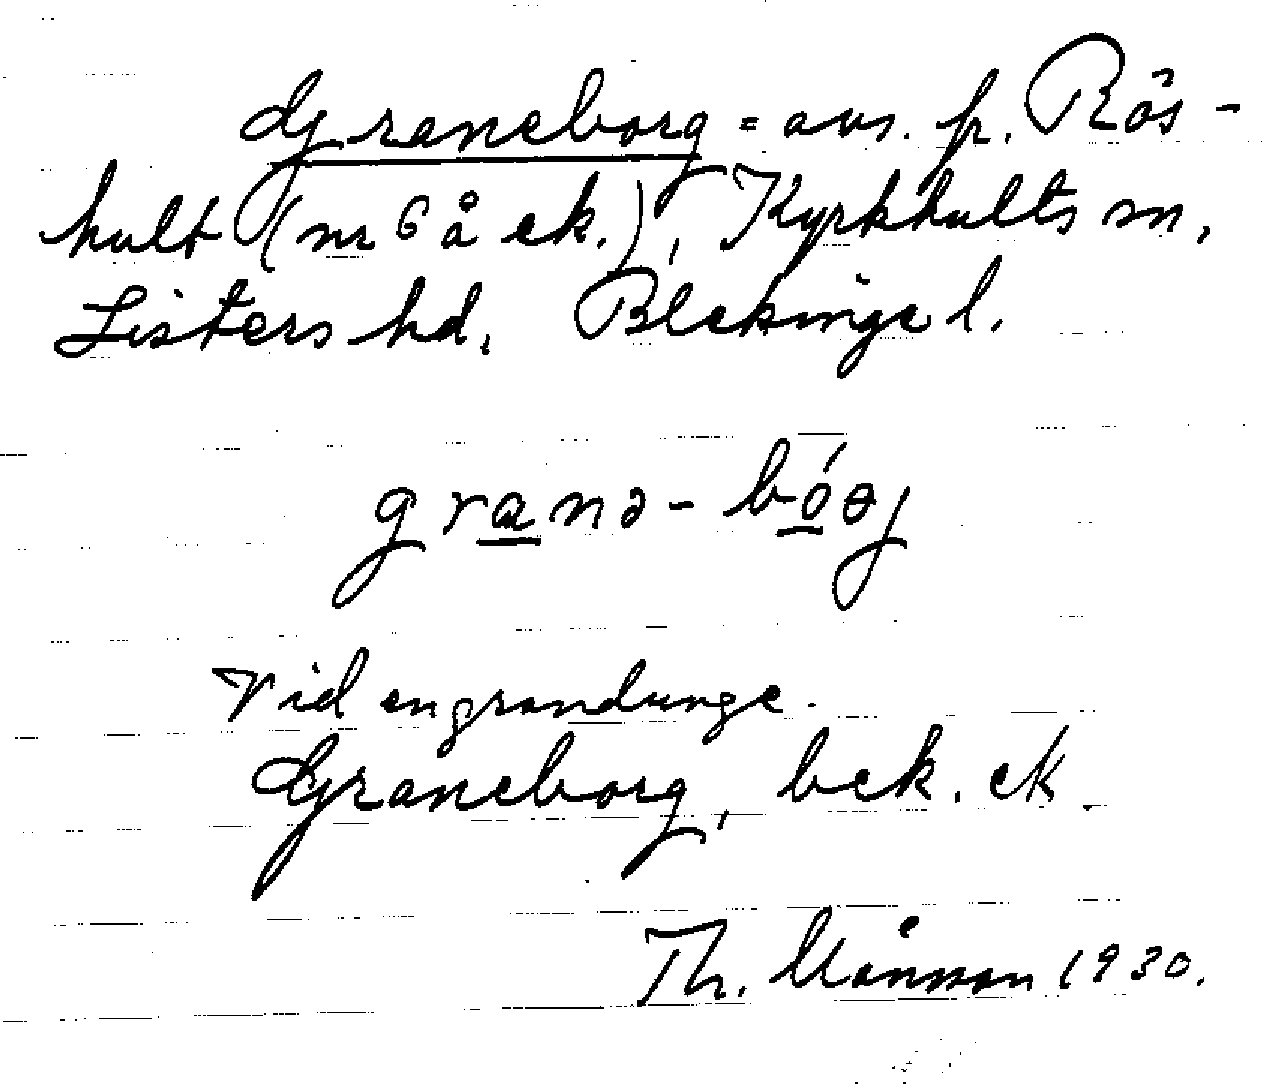 Graneborg = avs. fr. Rös-
hult (nr 6 å ek.), Kyrkhults sn,
Listers hd, Blekinge l.
granə - bóəj
Vid en grandunge.
Graneborg, bek. ek.
Th. Månsson 1930.